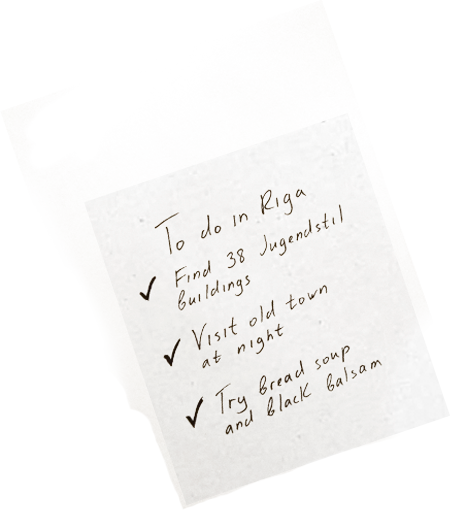 To do in Riga
✓ Find 38 Jugendstil
Buildings
✓ Visit old town
at night
✓ Try Bread soup
and Black Balsam